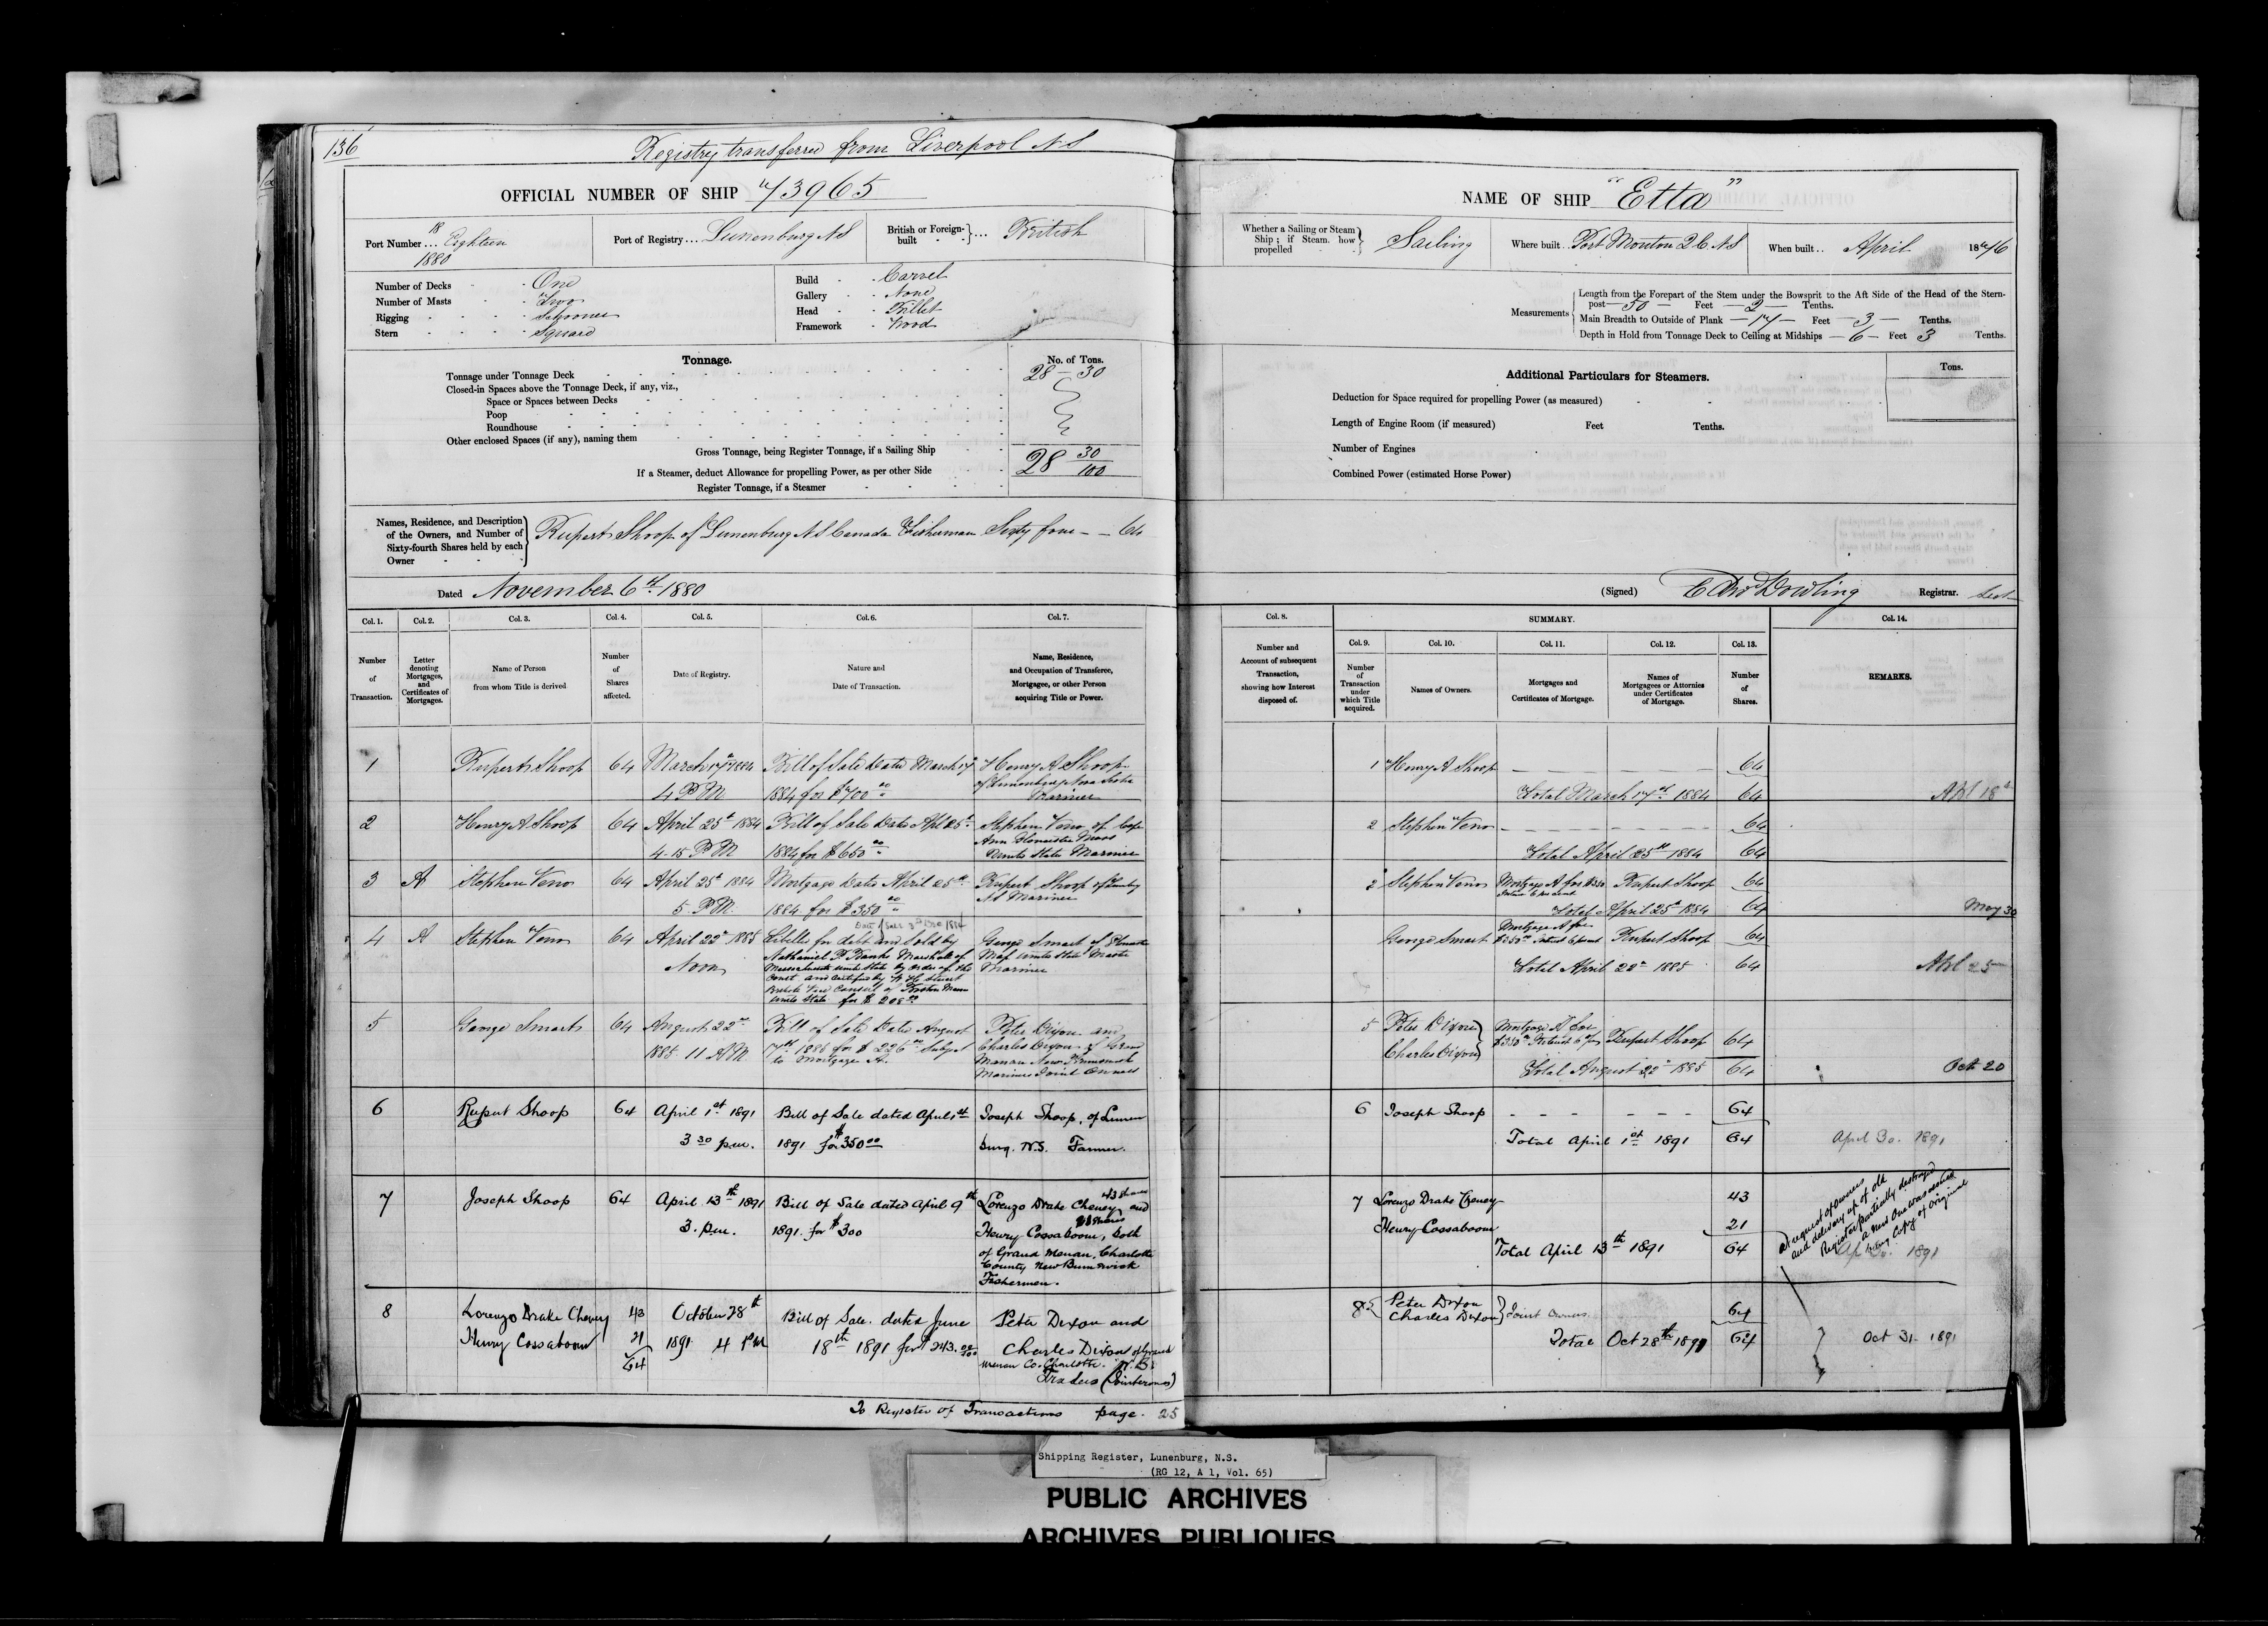 136
Registry transferred from Liverpool NS
OFFICIAL NUMBER OF SHIP 73965
Port Number ... 18 Eighteen 1880
Port of Registry ... Lunenburg NS
British or Foreign-built } ... British
Number of Decks - One
Number of Masts - Two
Rigging - Schooner
Stern - Square
Build - Carvel
Gallery - None
Head - Billet
Framework - Wood
Tonnage.
No. of Tons.
Tonnage under Tonnage Deck 28 - 30
Closed-in Spaces above the Tonnage Deck, if any, viz.,
Space or Spaces between Decks
Poop
Roundhouse
Other enclosed Spaces (if any), naming them
Gross Tonnage, being Register Tonnage, if a Sailing Ship 28 30/100
If a Steamer, deduct Allowance for propelling Power, as per other Side
Register Tonnage, if a Steamer
Names, Residence, and Description
of the Owners, and Number of
Sixty-fourth Shares held by each
Owner
Rupert Shoop of Lunenburg NS Canada Fisherman Sixty four - - 64
Dated November 6th 1880
Col. 1. Col. 2. Col. 3. Col. 4. Col. 5. Col. 6. Col. 7.
Number of Transaction.
Letter denoting Mortgages, and Certificates of Mortgages.
Name of Person from whom Title is derived
Number of Shares affected.
Date of Registry.
Nature and Date of Transaction.
Name, Residence, and Occupation of Transferee, Mortgagee, or other Person acquiring Title or Power.
1 Rupert Shoop 64 March 17th 1884 Bill of Sale Dated March 17 Henry A Shoop
4 PM 1884 for $700 00 of Lunenburg Nova Scotia
Mariner
2 Henry A Shoop 64 April 25th 1884 Bill of Sale Dated Apl 25th Stephen Veno of Cape
4.15 PM 1884 for $650 00 Ann Gloucester Mass
United States Mariner
3 A Stephen Veno 64 April 25th 1884 Mortgage Dated April 25th Rupert Shoop of
5 PM. 1884 for $350 00 NS Mariner
4 A Stephen Veno 64 April 22d 1885 Libelled for debt and sold by George Smart of
Noon Nathaniel P Banks Marshall of
Massachusetts United States by order of the Mariner
Court and certified by
British Vice Consul of Boston Mass
United States for $208 00
5 George Smart 64 August 22nd Bill of Sale Dated August Peter Dixon and
1885 11 AM 7th 1885 for $226 00 subject Charles Dixon of Grand
to Mortgage A. Manan New Brunswick
Mariners Joint Owners
6 Rupert Shoop 64 April 1st 1891 Bill of Sale dated April 1st Joseph Shoop, of Lunen
3 30 p.m. 1891 for $350 00 burg. N.S. Farmer.
7 Joseph Shoop 64 April 13th 1891 Bill of Sale dated April 9th Lorenzo Drake Cheney 43 shares and
3. p.m. 1891. for $300 21 shares
Henry Cossaboom, both
of Grand Manan, Charlotte
County New Brunswick
Fishermen.
8 Lorenzo Drake Cheney 43 October 28th Bill of Sale. dated June Peter Dixon and
Henry Cossaboom 21 1891 4 PM 18th 1891 for $243.00/100 Charles Dixon of Grand
64 Manan Co. Charlotte. N.B.
Traders (Joint owners)
To Register of Transactions page. 25
NAME OF SHIP "Etta"
Whether a Sailing or Steam
Ship; if Steam, how
propelled } Sailing
Where built Port Mouton 2 C NS
When built .. April 1876
Measurements
Length from the Forepart of the Stem under the Bowsprit to the Aft Side of the Head of the Stern-
post - 50 - Feet - 2 - Tenths.
Main Breadth to Outside of Plank - 17 - Feet - 3 - Tenths.
Depth in Hold from Tonnage Deck to Ceiling at Midships - 6 - Feet 3 Tenths.
Additional Particulars for Steamers.
Tons.
Deduction for Space required for propelling Power (as measured)
Length of Engine Room (if measured) Feet Tenths.
Number of Engines
Combined Power (estimated Horse Power)
(Signed) Dowling Registrar.
Col. 8. SUMMARY. Col. 14.
Col. 9. Col. 10. Col. 11. Col. 12. Col. 13.
Number and Account of subsequent Transaction, showing how Interest disposed of.
Number of Transaction under which Title acquired.
Names of Owners.
Mortgages and Certificates of Mortgage.
Names of Mortgagees or Attornies under Certificates of Mortgage.
Number of Shares.
REMARKS.
1 Henry A Shoop 64
Total March 17th 1884 64
2 Stephen Veno 64
Total April 25th 1884 64
2 Stephen Veno Mortgage A for $350 Rupert Shoop 64
Total April 25th 1884 64 May 30
George Smart Mortgage A for $350 00 Interest 6 percent Rupert Shoop 64
Total April 22nd 1885 64
5 Peter Dixon Mortgage A for
Charles Dixon $350 00 Rupert Shoop 64
Total August 22nd 1885 64 Oct 20
6 Joseph Shoop - - - - - - 64
Total April 1st 1891 64 April 30. 1891
7 Lorenzo Drake Cheney 43
Henry Cossaboom 21
Total April 13th 1891 64
At request of owners
and delivery up of old
Register partially destroyed
a new one was issued
being Copy of original
Ap 30. 1891
8 { Peter Dixon
Charles Dixon } Joint Owners 64
Total Oct 28th 1891 64 Oct 31. 1891
Shipping Register, Lunenburg, N.S.
(RG 12, A 1, Vol. 65)
PUBLIC ARCHIVES
ARCHIVES PUBLIQUES